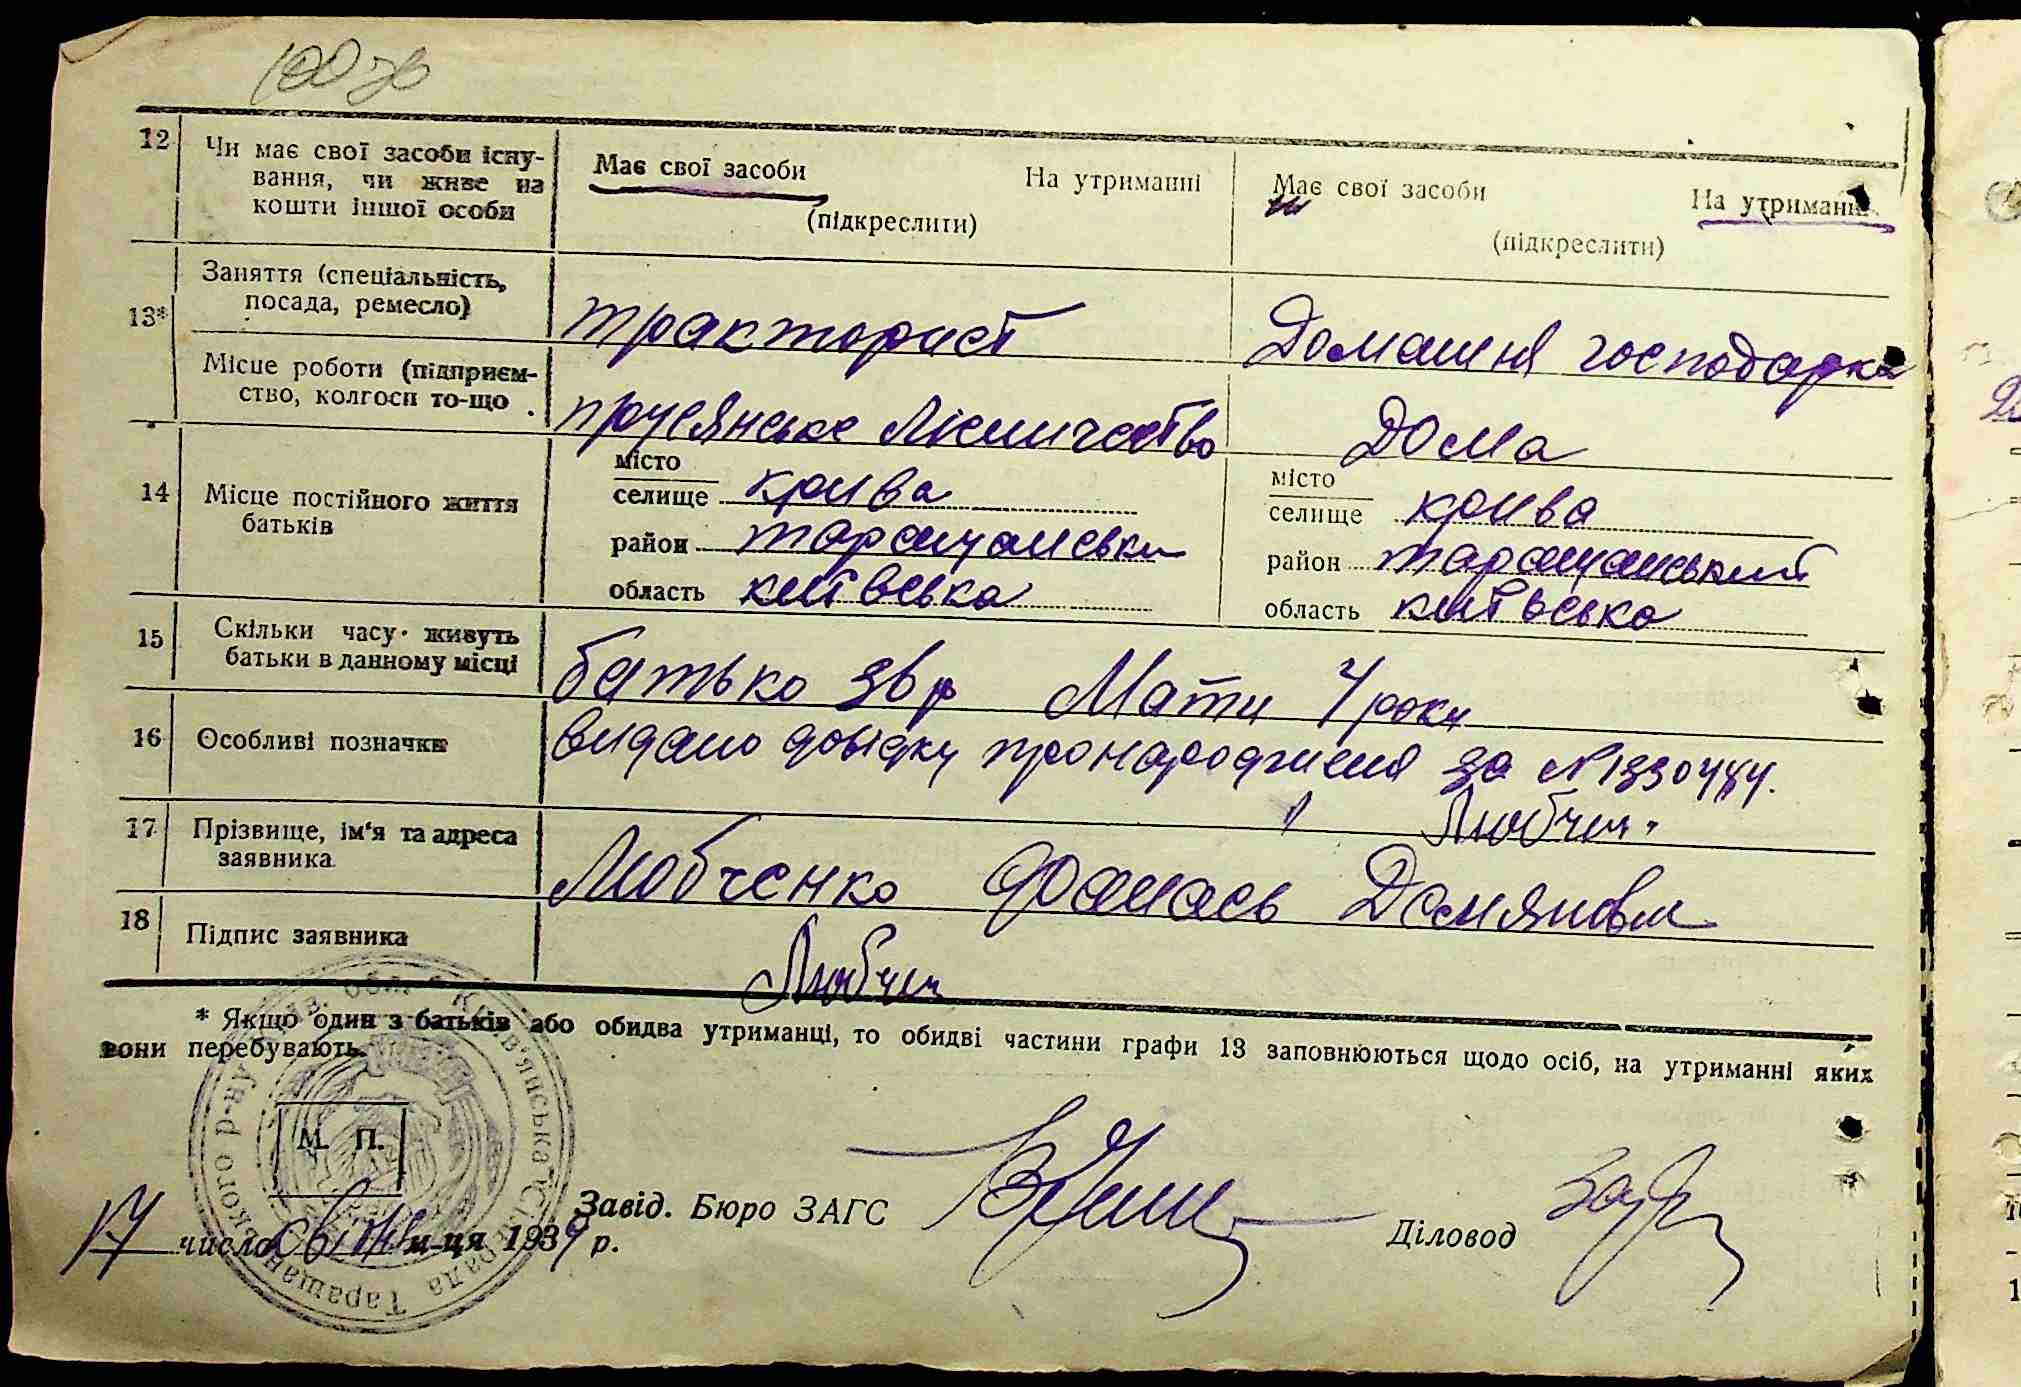 100 зв
12 Чи має свої засоби існу-
вання, чи живе на
кошти іншої особи
Має свої засоби На утриманні
(підкреслити)
Має свої засоби На утриманні
(підкреслити)
13* Заняття (спеціальність,
посада, ремесло)
тракторист
Домашня господарка
Місце роботи (підприєм-
ство, колгосп то-що
прусянське лісничество
Дома
14 Місце постійного життя
батьків
місто
селище крива
район таращанськи
область київська
місто
селище крива
район таращанський
область київська
15 Скільки часу живуть
батьки в данному місці
батько Зв р Мати 4 роки
16 Особливі позначки
видано довідку про народженя за №1330484.
Любчен.
17 Прізвище, ім'я та адреса
заявника
Любченко Фанась Домянови
18 Підпис заявника
Любчен
* Якщо один з батьків або обидва утриманці, то обидві частини графи 13 заповнюються щодо осіб, на утриманні яких
вони перебувають.
М. П.
Завід. Бюро ЗАГС
Діловод
17 число м-ця 1939 р.
Крив'янська Сільрада Таращанського р-ну Київ. обл.